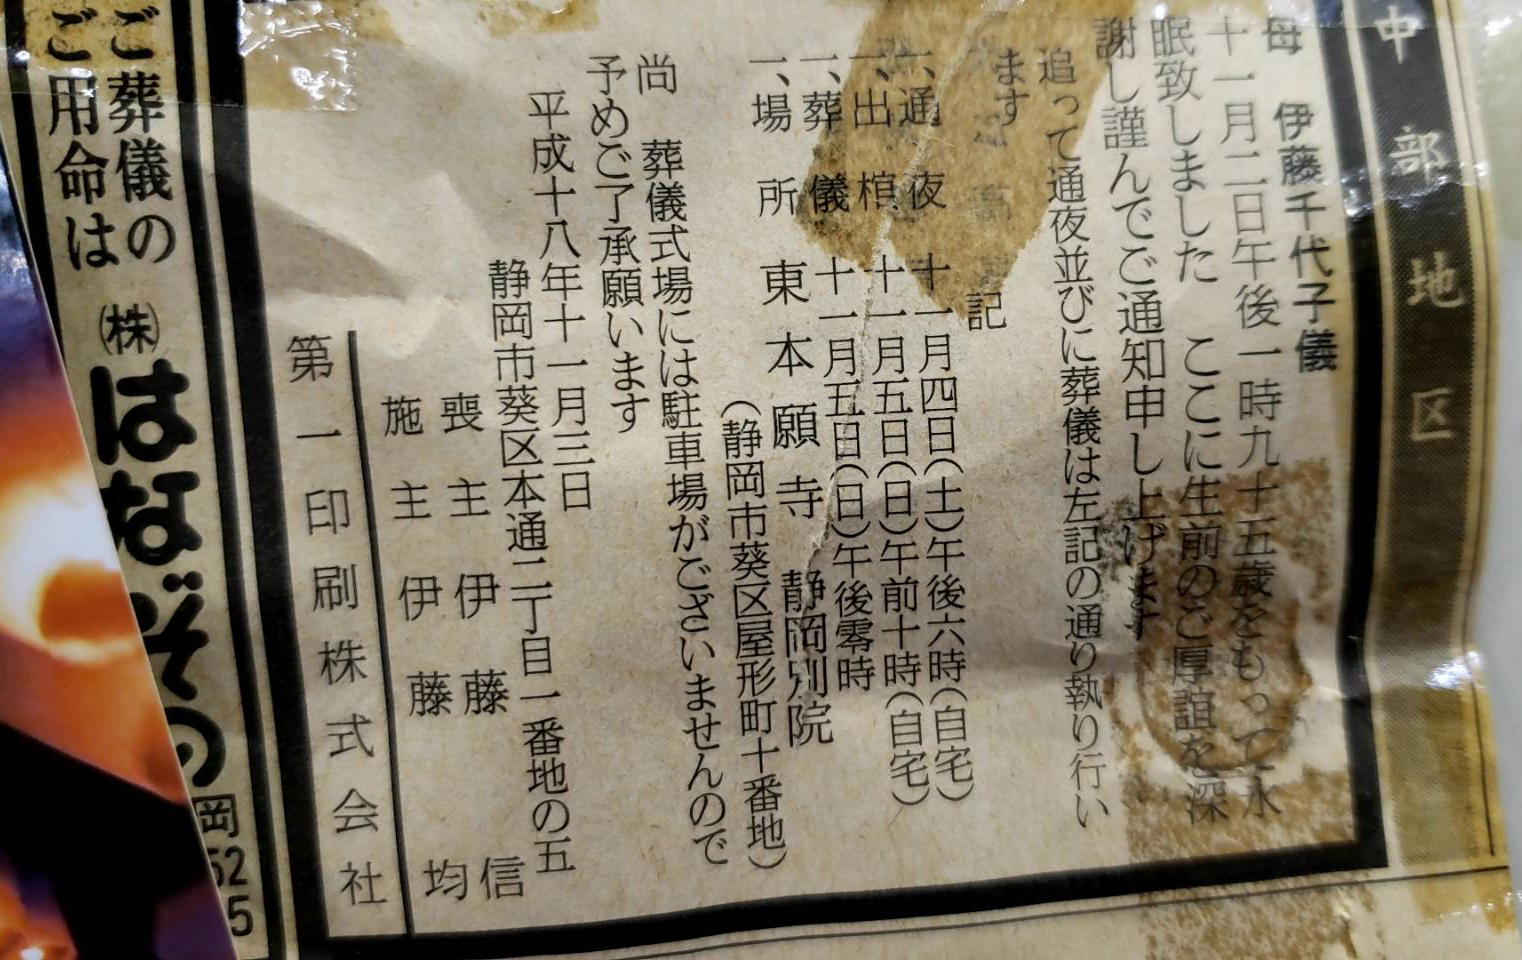 中部地区
母 伊藤千代子儀
十一月二日午後一時九十五歳をもって永
眠致しました ここに生前のご厚誼を深
謝し謹んでご通知申し上げます
追って通夜並びに葬儀は左記の通り執り行い
ます
記
一、通夜 十一月四日(土)午後六時(自宅)
一、出棺 十一月五日(日)午前十時(自宅)
一、葬儀 十一月五日(日)午後零時
一、場所 東本願寺 静岡別院
(静岡市葵区屋形町十番地)
尚 葬儀式場には駐車場がございませんので
予めご了承願います
平成十八年十一月三日
静岡市葵区本通二丁目一番地の五
喪主 伊藤 信
施主 伊藤 均
第一印刷株式会社
ご葬儀の
ご用命は
(株)はなぞの